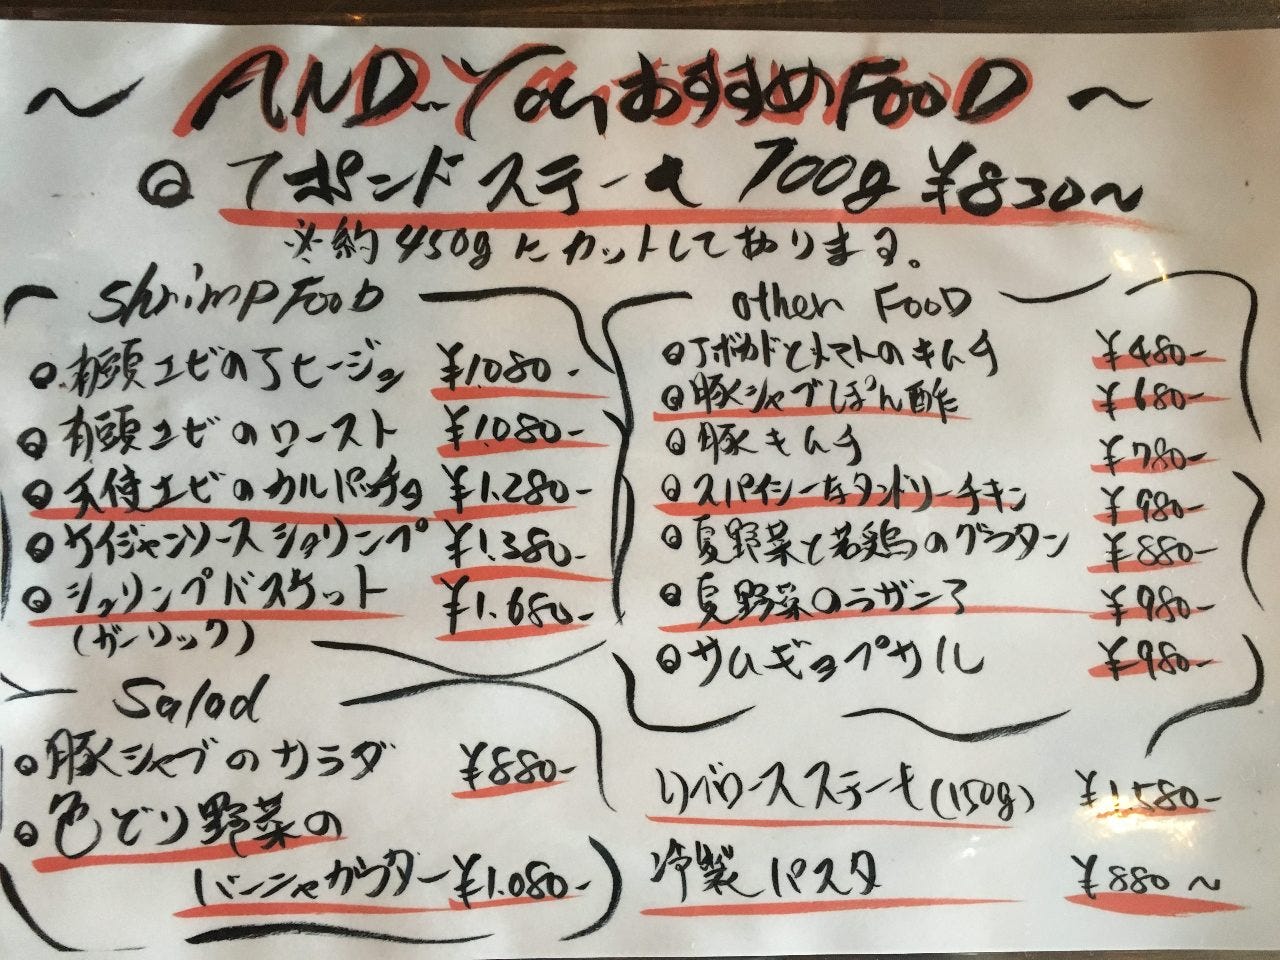 ～ AND..You おすすめ FOOD ～
◎ 1ポンドステーキ 100g ¥830～
※約450gにカットしてあります。
Shrimp FOOD
◎有頭エビのアヒージョ ¥1.080-
◎有頭エビのロースト ¥1.080-
◎天使エビのカルパッチョ ¥1.280-
◎ケイジャンソースシュリンプ ¥1.380-
◎シュリンプバスケット ¥1.680-
(ガーリック)
Salad
◎豚シャブのサラダ ¥880-
◎色どり野菜の
バーニャカウダー ¥1.080-
other FOOD
◎アボカドとトマトのキムチ ¥480-
◎豚シャブぽん酢 ¥680-
◎豚キムチ ¥780-
◎スパイシーなタンドリーチキン ¥980-
◎夏野菜と若鶏のグラタン ¥880-
◎夏野菜のラザニア ¥980-
◎サムギョプサル ¥980-
リブロースステーキ(150g) ¥1.580-
冷製パスタ ¥880～